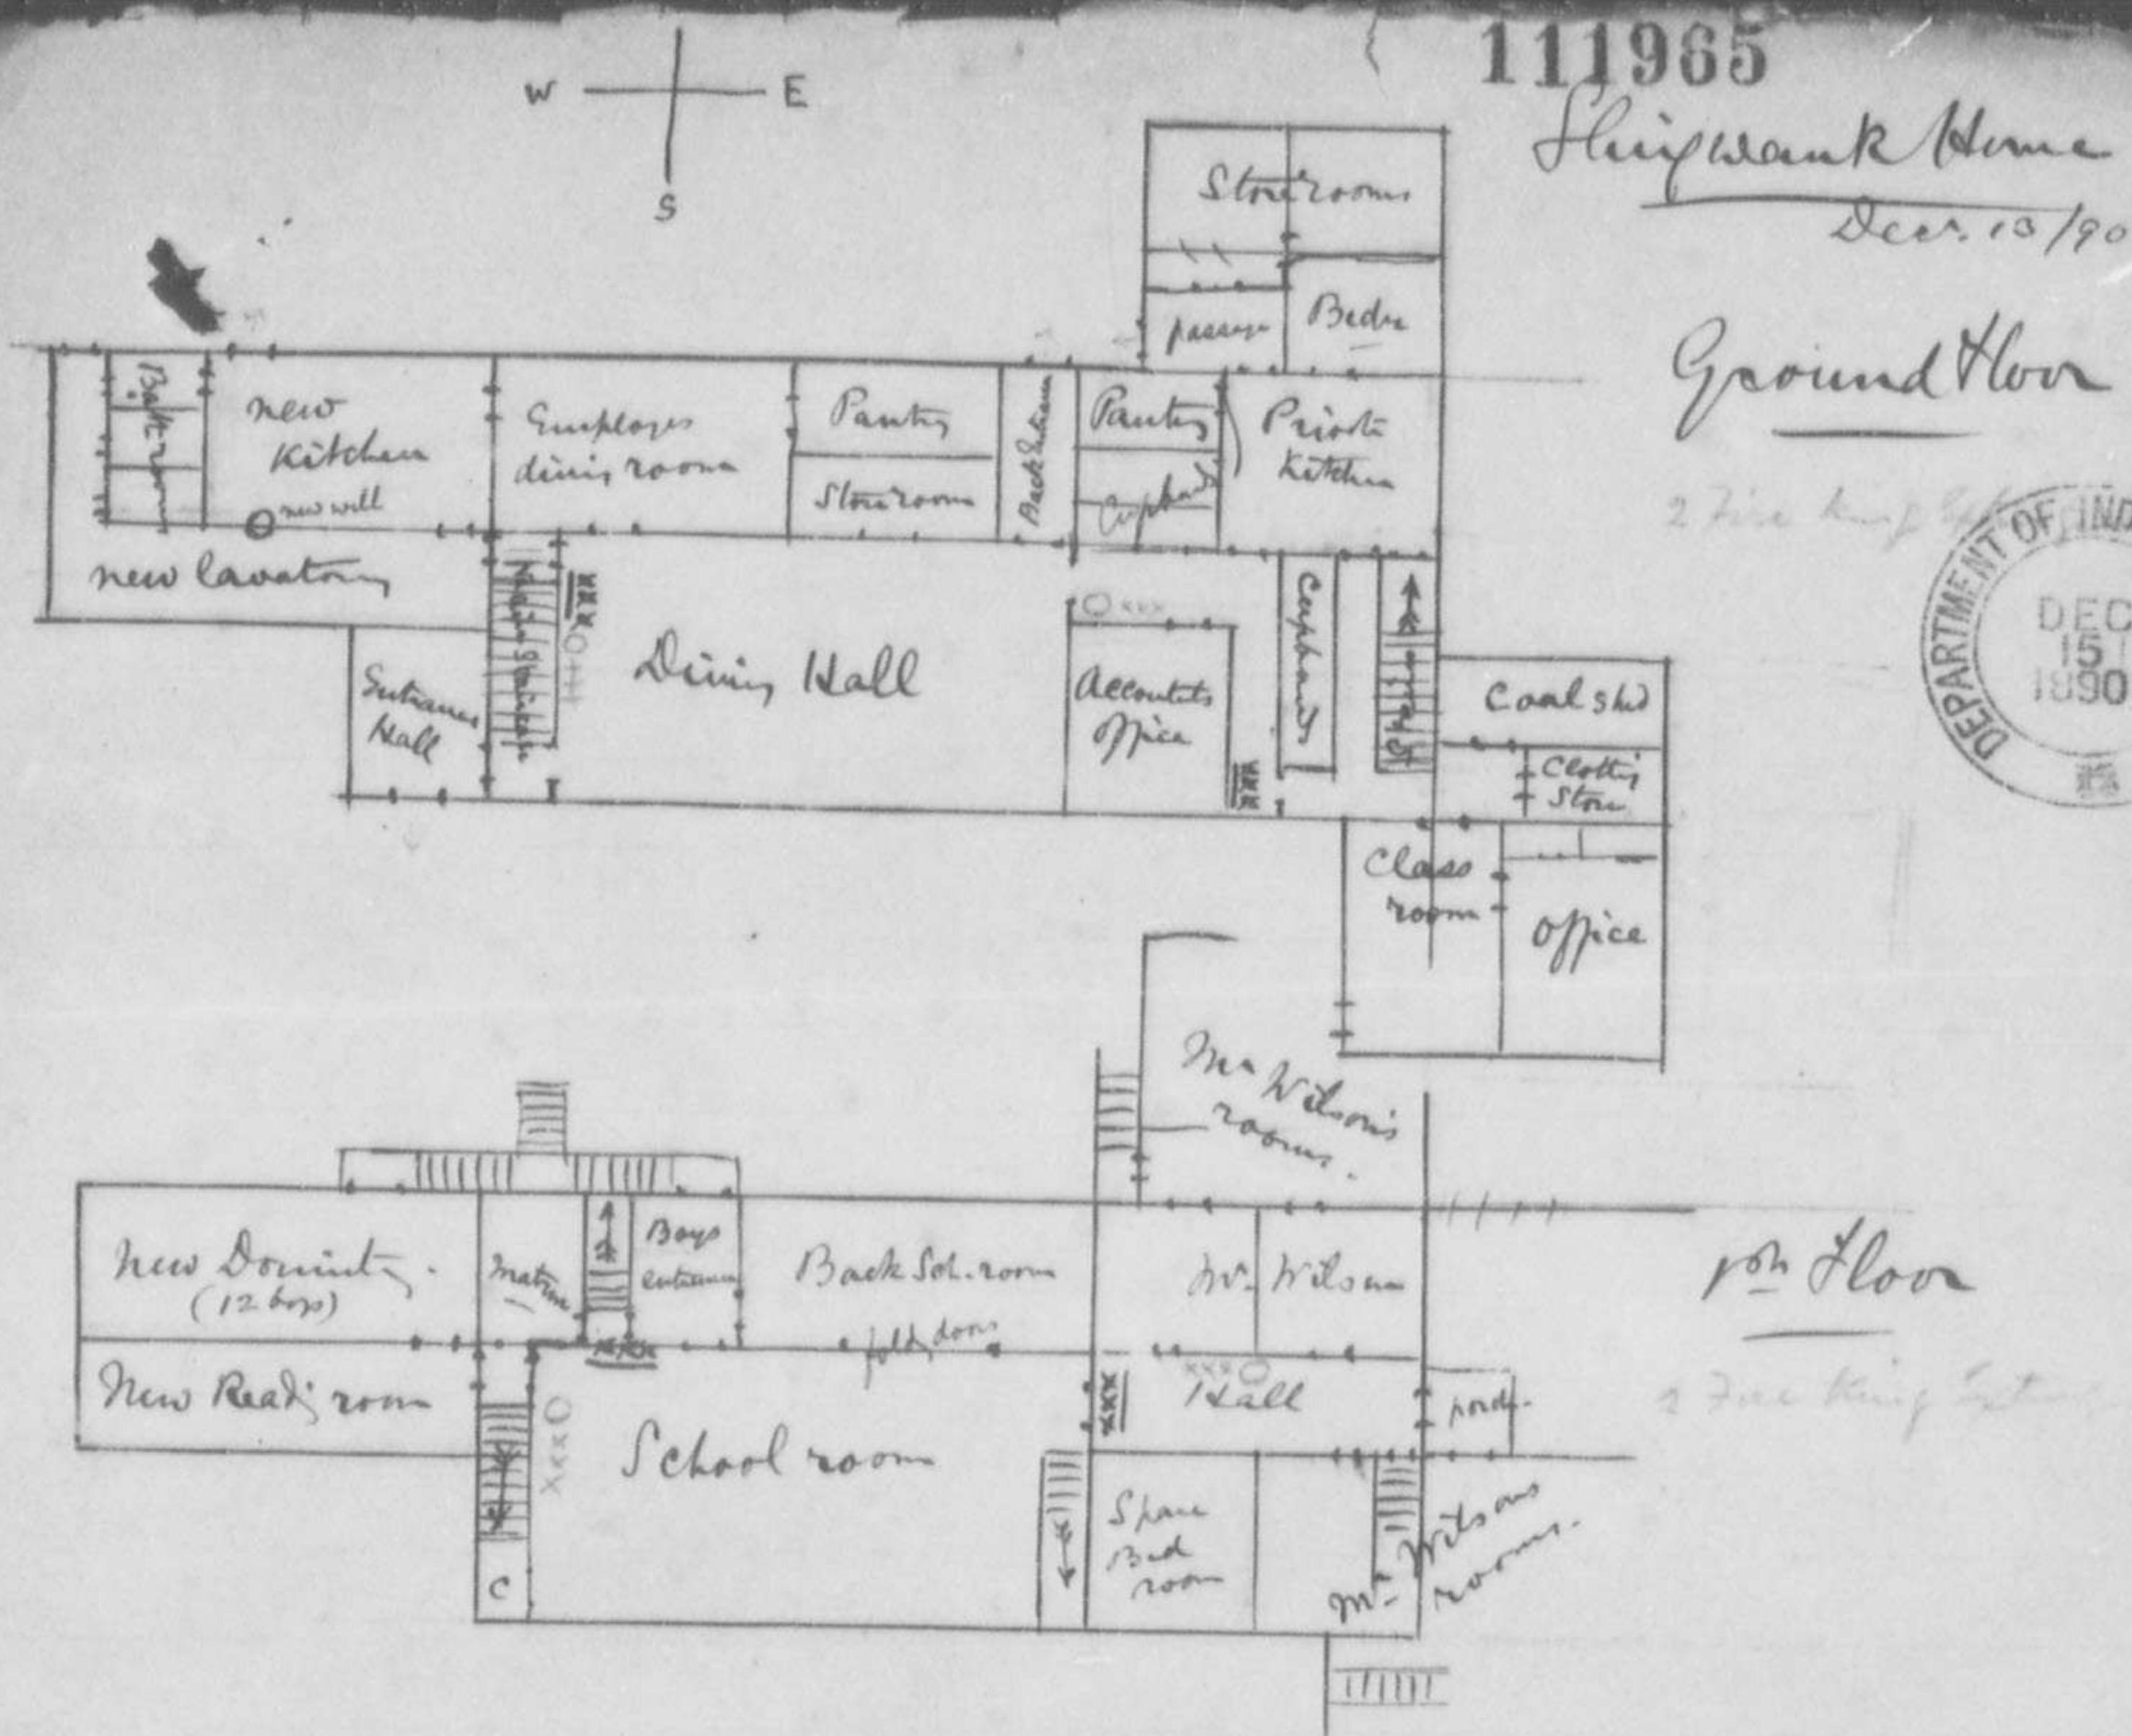 111965
Shingwauk Home
Decr. 13/90
W E
S
Ground Floor
2 Fire King
DEPARTMENT OF IND
DEC
15
1890
Store rooms
passage
Bedr
Bath room
new
Kitchen
new well
Employes
dining room
Pantry
Store room
Back Entrance
Pantry
Cupboards
Private
Kitchen
new lavatory
Entrance
Hall
Staircase
xxx
Dining Hall
xxx
Accoutats
Office
xxx
Cupboards
Coal shed
Clothg
Store
Class
room
Office
Mr Wilson's
rooms.
1st Floor
2 Fire King
New Dormity.
(12 boys)
Matron
Boys
entrance
Back Sch. room
foldg doors
Mr. Wilson
New Readg room
xxx
xxx
School room
xxx
xxx
Hall
porch.
Spare
Bed
room
C
Mr Wilsons
rooms.